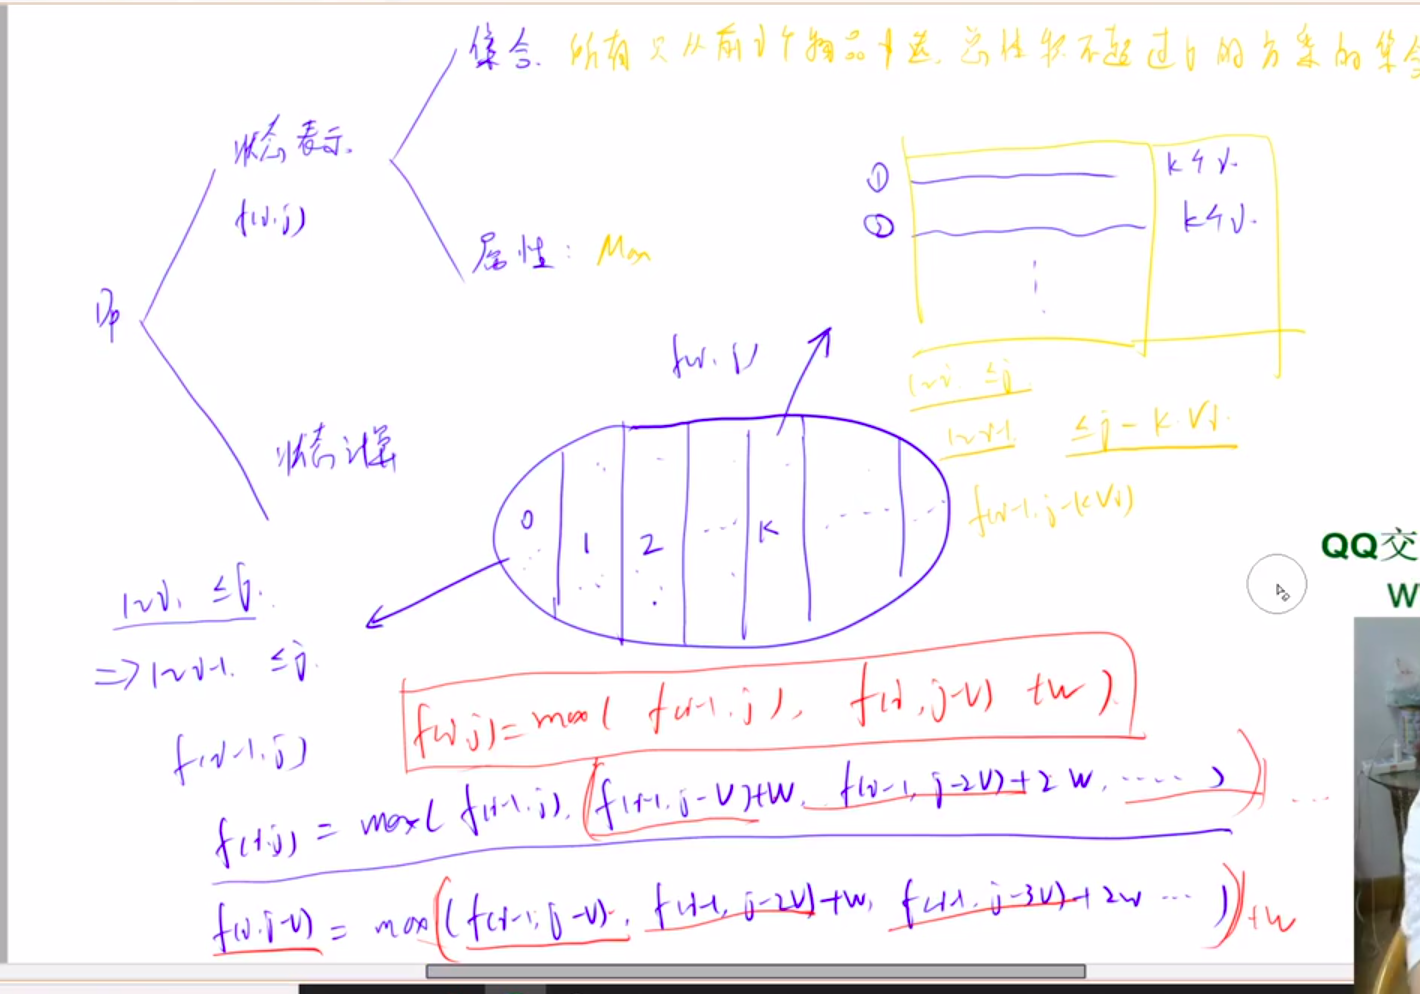 集合. 所有只从前i个物品中选, 总体积不超过j的方案的集合
状态表示.
f(i.j)
属性: Max
Dp
状态计算
① k个i.
② k个i.
f(i.j)
1~i. ≤j
1~i-1. ≤j-k.Vi.
f(i-1.j-kVi)
0 1 2 ... K ...
1~i. ≤j.
=> 1~i-1. ≤j.
f(i-1.j)
QQ交
W
f(i.j) = max( f(i-1.j), f(i,j-V) +W ).
f(i.j) = max( f(i-1.j), f(i-1,j-V)+W, f(i-1,j-2V)+2W, ...... ) ...
f(i.j-V) = max( (f(i-1,j-V), f(i-1,j-2V)+W, f(i-1,j-3V)+2W ... ) +W